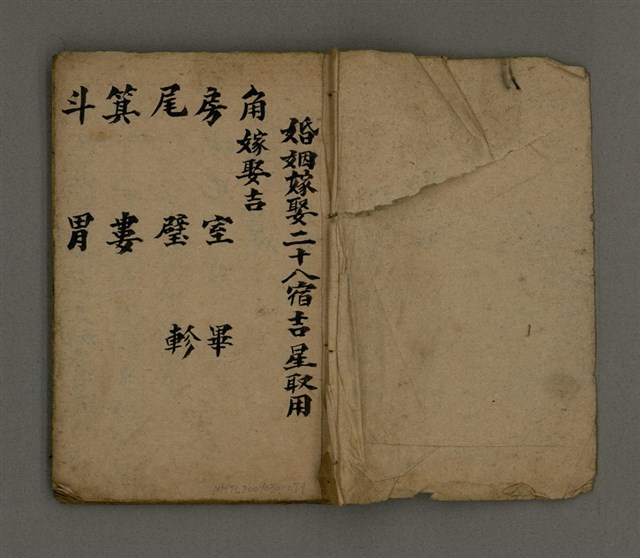 婚姻嫁娶二十八宿吉星取用
角 嫁娶吉
房 室 畢
尾 璧 軫
箕 婁
斗 胃